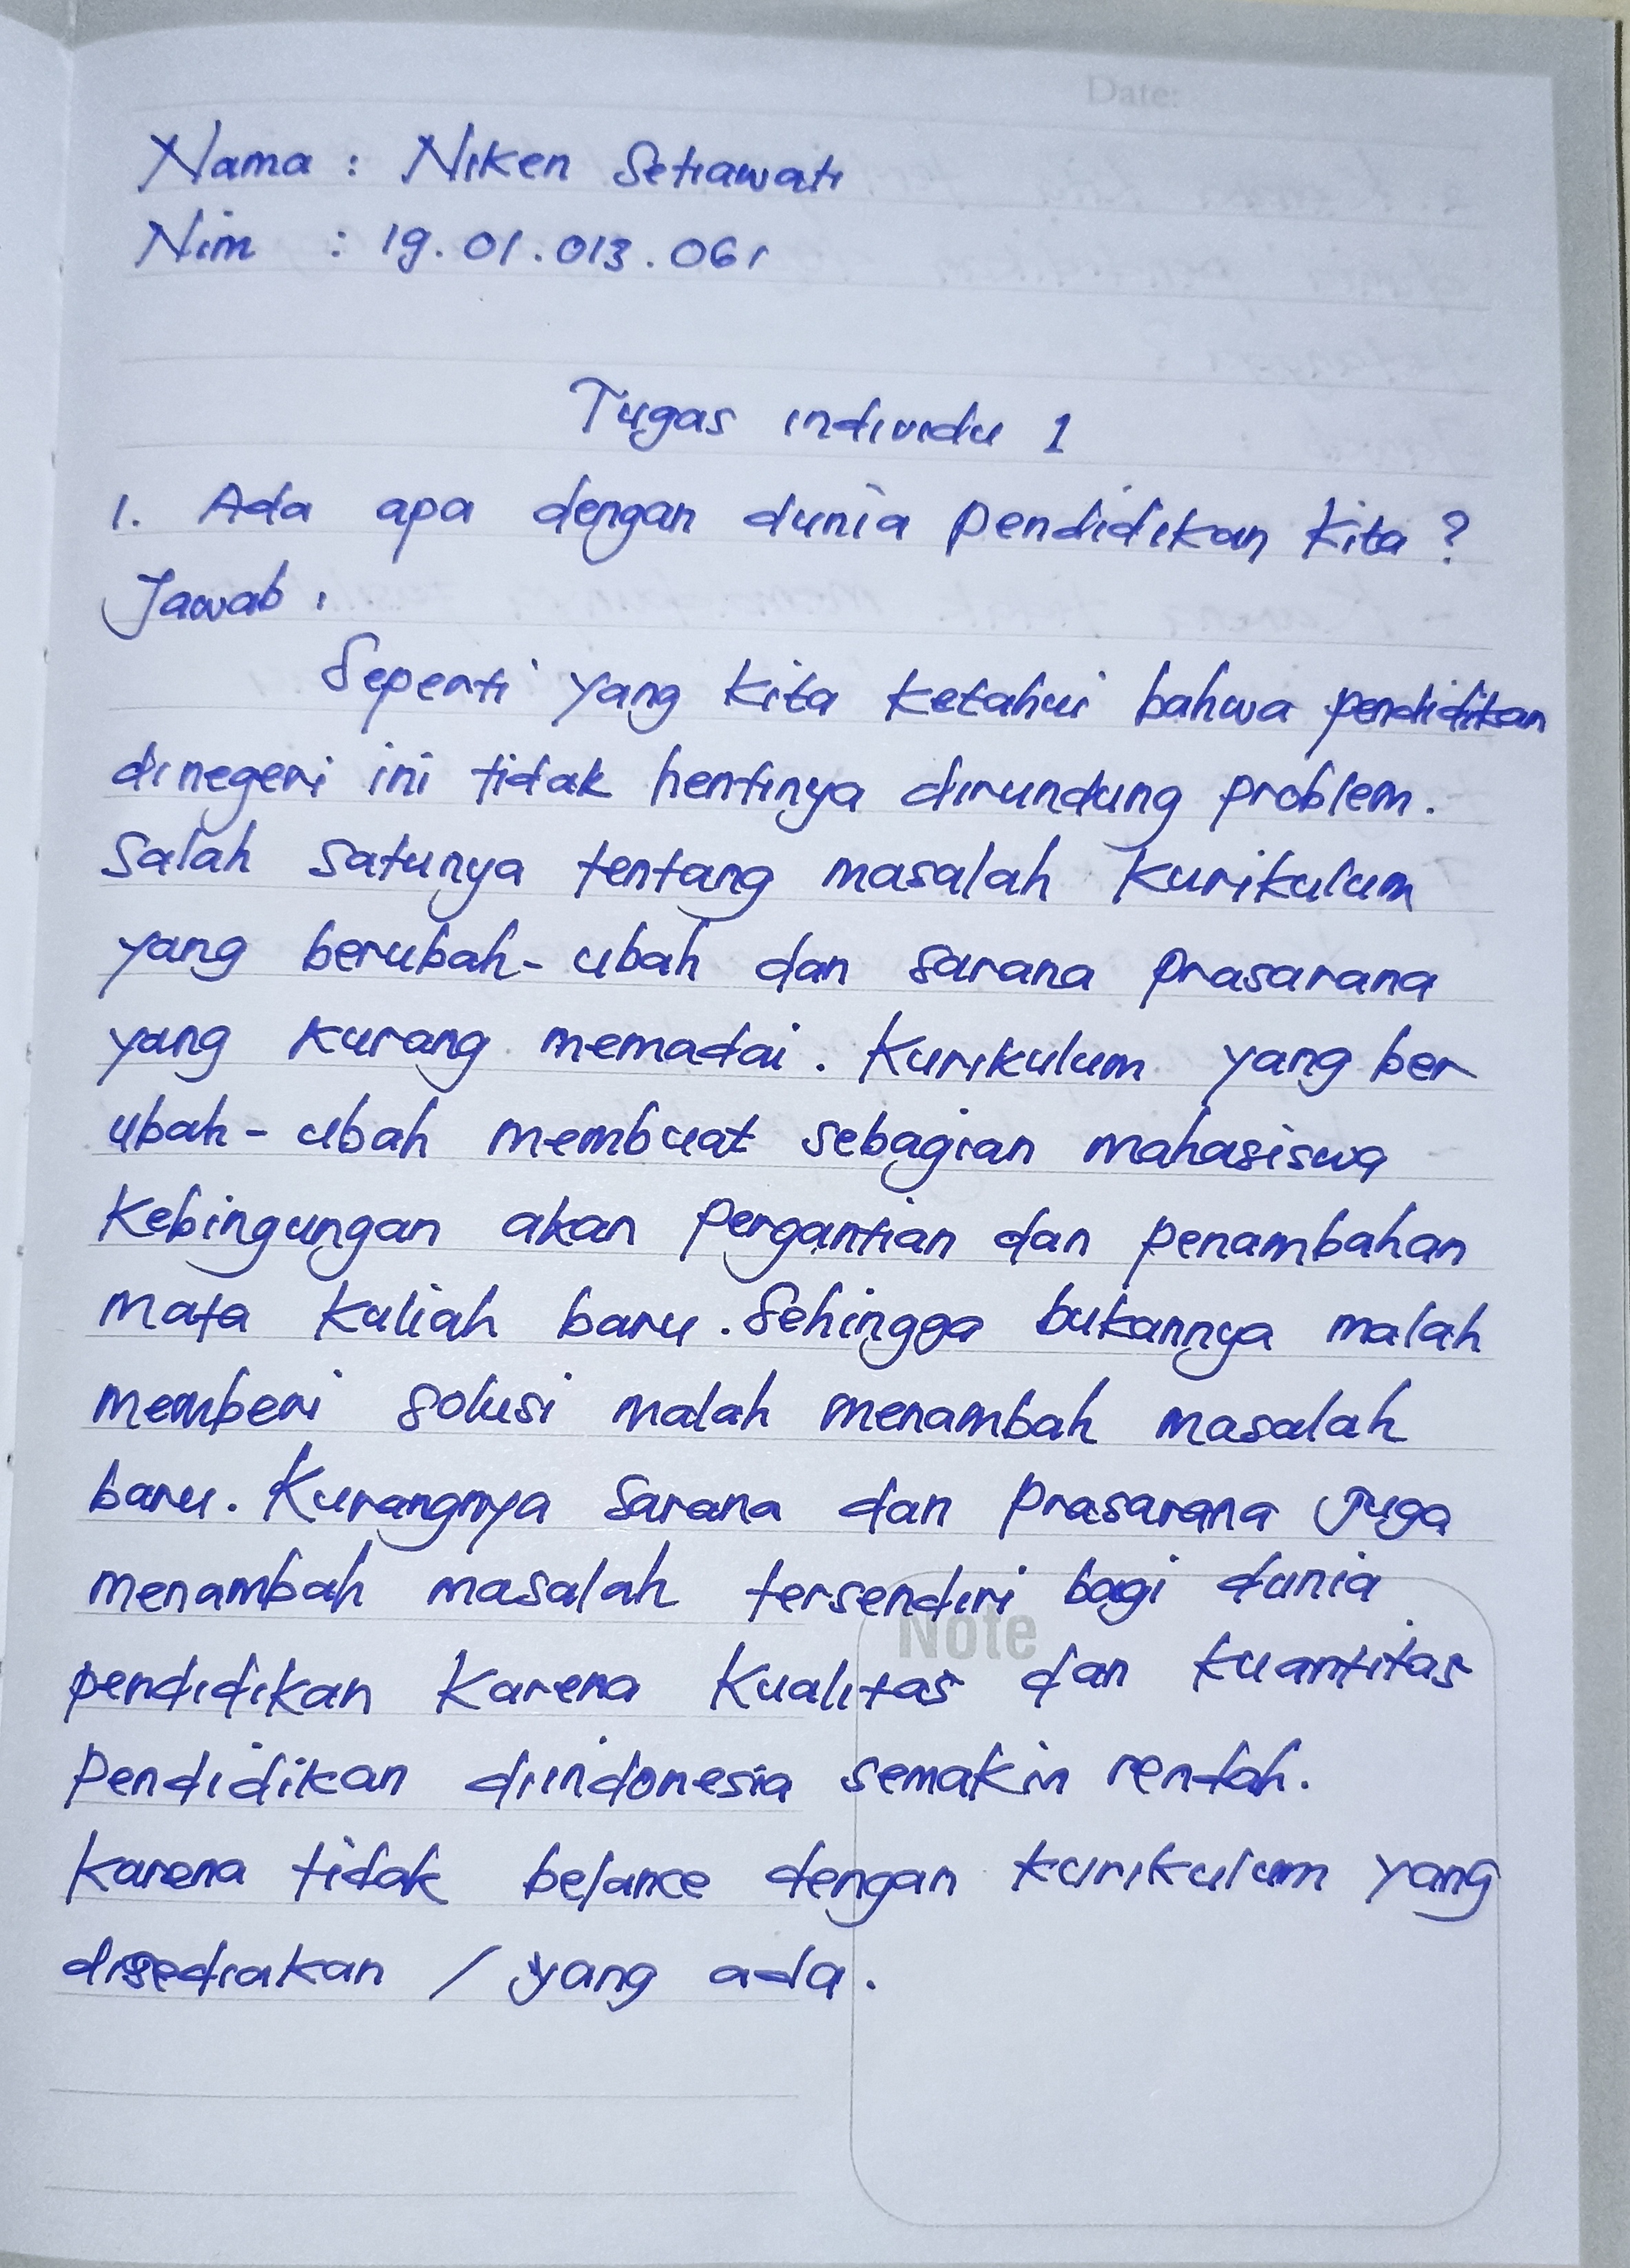 Date:
Nama : Niken Setiawati
Nim : 19.01.013.061
Tugas individu 1
1. Ada apa dengan dunia pendidikan kita ?
Jawab :
Seperti yang kita ketahui bahwa pendidikan
dinegeri ini tidak hentinya dirundung problem.
Salah satunya tentang masalah kurikulum
yang berubah-ubah dan sarana prasarana
yang kurang memadai. Kurikulum yang ber
ubah-ubah membuat sebagian mahasiswa
kebingungan akan pergantian dan penambahan
mata kuliah baru. Sehingga bukannya malah
memberi solusi malah menambah masalah
baru. Kurangnya sarana dan prasarana juga
menambah masalah tersendiri bagi dunia
Note
pendidikan karena kualitas dan kuantitas
pendidikan diindonesia semakin rendah.
Karena tidak belance dengan kurikulum yang
disediakan / yang ada.